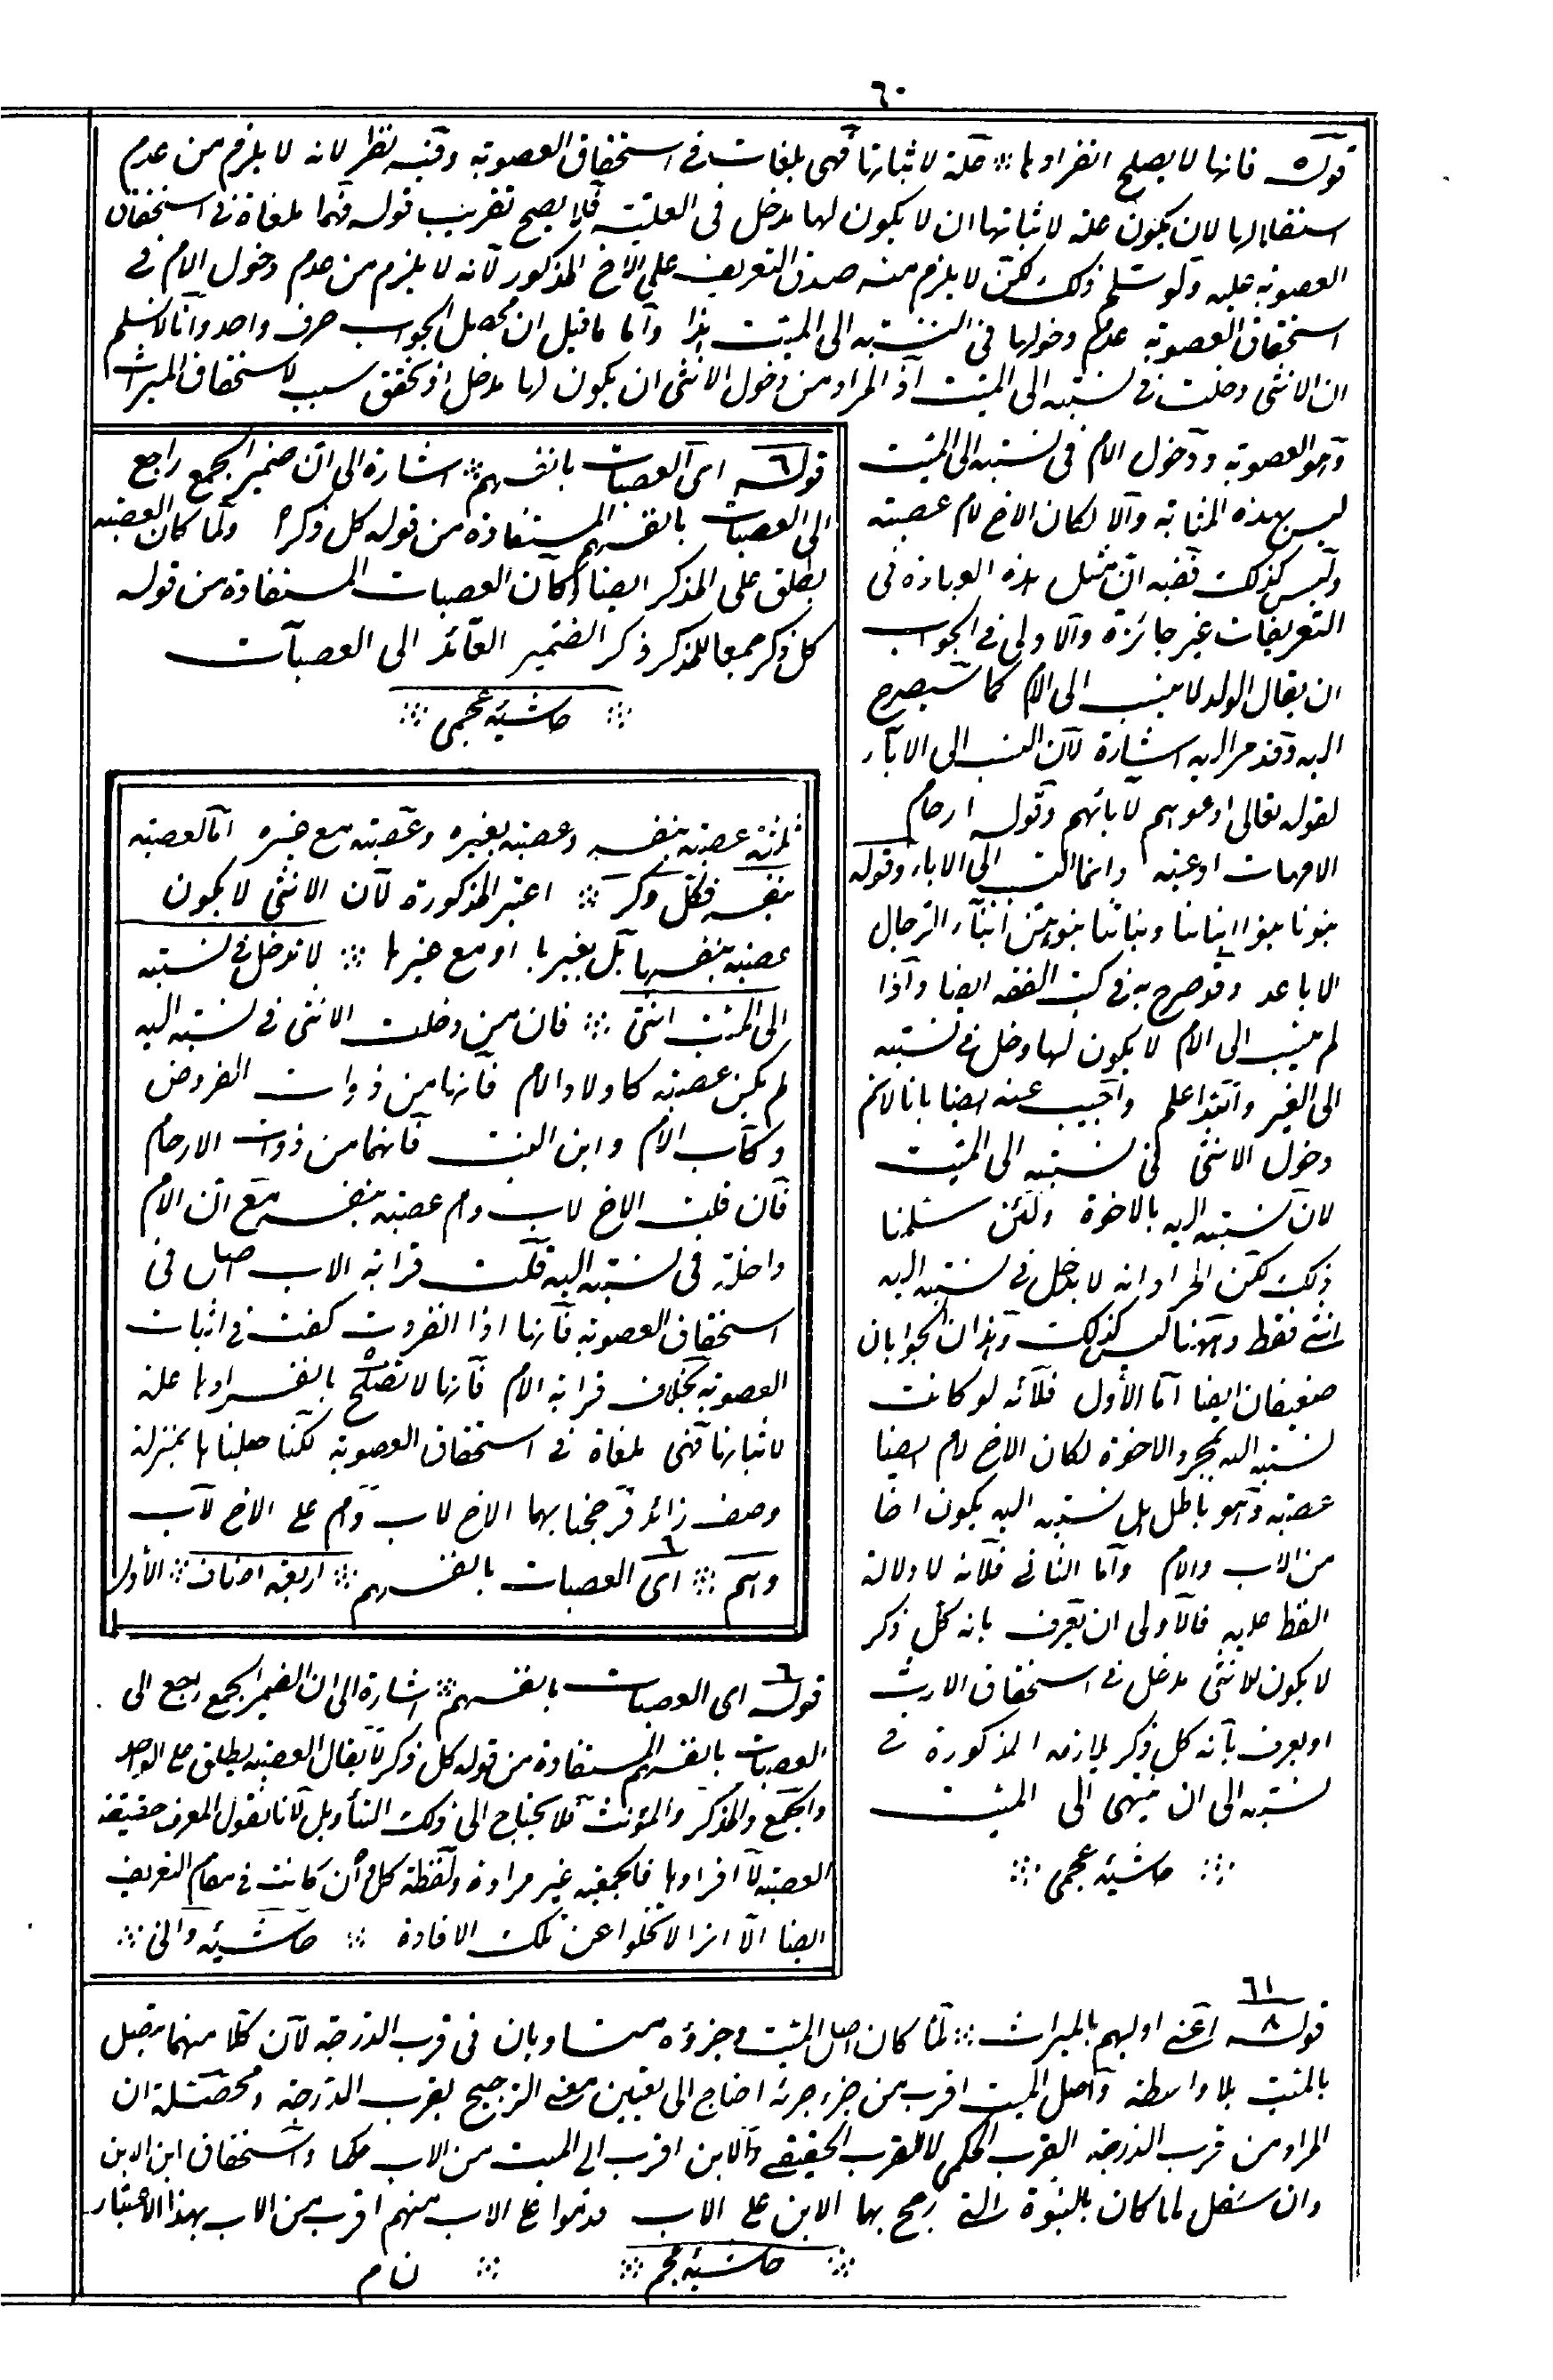 ٦٠
قوله فانها لا يصلح انفرادها ⁘ علة لاثباتها فهى ملغات فى استحقاق العصوبة وفيه نظر لانه لا يلزم من عدم
استقلالها لان يكون علة لاثباتها ان لا يكون لها مدخل فى العلية فلا يصح تقريب قوله فهى ملغاة فى استحقاق
العصوبة عليه ولو سلم ذلك لكن لا يلزم منه صدق التعريف على الاخ المذكور لانه لا يلزم من عدم دخول الام فى
استحقاق العصوبة عدم دخولها فى النسبة الى الميت هذا واما ما قيل ان محصل الجواب حرف واحد وانا لا نسلم
ان الانثى دخلت فى نسبته الى الميت اذ المراد من دخول الانثى ان يكون لها مدخل اذ تحقق سبب لاستحقاق الميراث
وهو العصوبة ودخول الام فى نسبته الى الميت
ليس بهذه المثابة والا لكان الاخ لام عصبة
وليس كذلك ففيه ان مثل هذه العبارة فى
التعريفات غير جائزة والاولى فى الجواب
ان يقال الولد لا ينسب الى الام كما سيصرح
اليه وقد مر اليه اشارة لان النسب الى الاباء
لقوله تعالى ادعوهم لابائهم وقوله ارحام
الامهات اوعية وانما النسب الى الاباء وقوله
بنونا بنوا ابنائنا وبناتنا بنوهن ابناء الرجال
الاباعد وقد صرح به فى كتب الفقه ايضا واذا
لم ينسب الى الام لا يكون لها دخل فى نسبته
الى الغير والله اعلم واجيب عنه ايضا بانا لا نم
دخول الانثى فى نسبته الى الميت
لان نسبته اليه بالاخوة ولئن سلمنا
ذلك لكن المراد انه لا يدخل فى نسبته اليه
انثى فقط وههنا ليس كذلك وهذان الجوابان
ضعيفان ايضا اما الأول فلانه لو كانت
نسبته اليه بمجرد الاخوة لكان الاخ لام ايضا
عصبة وهو باطل بل نسبته اليه يكون اخا
من الاب والام واما الثانى فلانه لا دلالة
للفظ عليه فالاولى ان يعرف بانه كل ذكر
لا يكون للانثى مدخل فى استحقاق الارث
او يعرف بانه كل ذكر يلازمه المذكورة فى
نسبته الى ان ينتهى الى الميت
⁘ حاشيه عجمى ⁘
قوله اى العصبات بانفسهم ⁘ اشارة الى ان ضمير الجمع راجع
الى العصبات بانفسهم المستفادة من قوله كل ذكر ولما كان العصبة
يطلق على المذكر ايضا وكان العصبات المستفادة من قوله
كل ذكر جمعا للمذكر ذكر الضمير العائد الى العصبات
⁘ حاشيه عجمى ⁘
ثلثة عصبة بنفسه وعصبة بغيره وعصبة مع غيره اما العصبة
بنفسه فكل ذكر ⁘ اعتبر المذكورة لان الانثى لا يكون
عصبة بنفسها بل بغيرها او مع غيرها ⁘ لا تدخل فى نسبته
الى الميت انثى ⁘ فان من دخلت الانثى فى نسبته اليه
لم يكن عصبة كاولاد الام فانها من ذوات الفروض
وكاب الام وابن البنت فانهما من ذوات الارحام
فان قلت الاخ لاب وام عصبة بنفسه مع ان الام
داخلة فى نسبته اليه قلت قرابة الاب اصل فى
استحقاق العصوبة فانها اذا انفردت كفت فى اثبات
العصوبة بخلاف قرابة الام فانها لا تصلح بانفرادها علة
لاثباتها فهى ملغاة فى استحقاق العصوبة لكنا جعلناها بمنزلة
وصف زائد فرجحنا بهما الاخ لاب وام على الاخ لاب
وهم ⁘ اى العصبات بانفسهم ⁘ اربعة اصناف ⁘ الأول
قوله اى العصبات بانفسهم ⁘ اشارة الى ان الضمير الجمع راجع الى
العصبات بانفسهم المستفادة من قوله كل ذكر لا يقال العصبة يطلق على الواحد
والجمع والمذكر والمؤنث فلا يحتاج الى ذلك التأويل لانا نقول المعرف حقيقة
العصبة لا افرادها فالجمعية غير مرادة ولفظة كل وان كانت فى مقام التعريف
ايضا الا انها لا تخلوا عن تلك الافادة ⁘ حاشيه والى ⁘
٦١
٨
قوله اعنى اوليهم بالميراث ⁘ لما كان اصل الميت وجزؤه متساويان فى قرب الدرجة لان كلا منهما يتصل
بالميت بلا واسطة واصل الميت اقرب من جزء جزئه احتاج الى تعيين معنى الترجيح بقرب الدرجة ومحصله ان
المراد من قرب الدرجة القرب الحكمى لا القرب الحقيقى والابن اقرب الى الميت من الاب حكما واستحقاق ابن الابن
وان سفل لما كان بالبنوة التى رجح بها الابن على الاب قدموا على الاب منهم اقرب من الاب بهذا الاعتبار
⁘ حاشيه عجم ⁘ ⁘ ن م